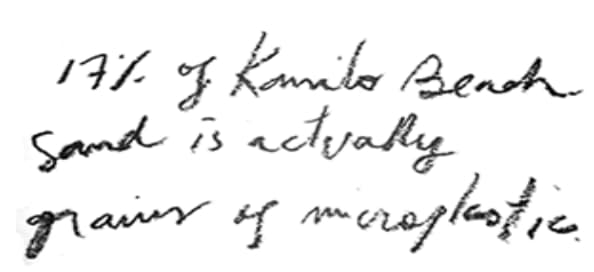 17% of Kamilo Beach
sand is actually
grains of microplastic.